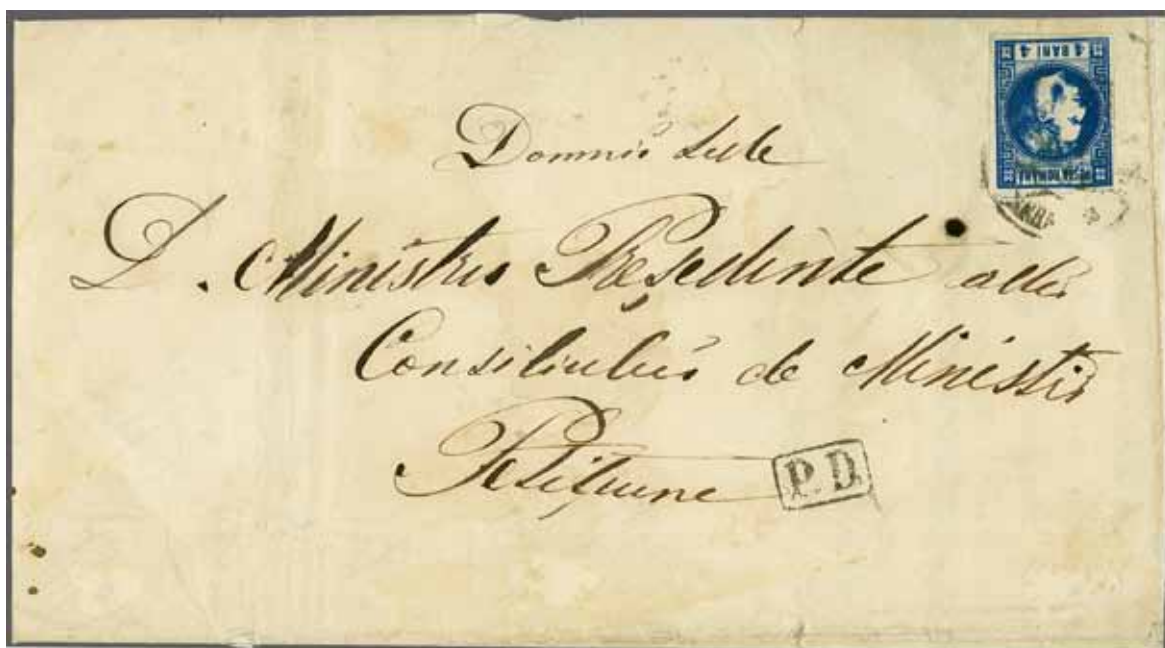 4 BARI 4
POSTA ROMANA
Domnii Sale
D. Ministru Preşedinte allu
Consiliului de Ministri
Petiţiune
P. D.